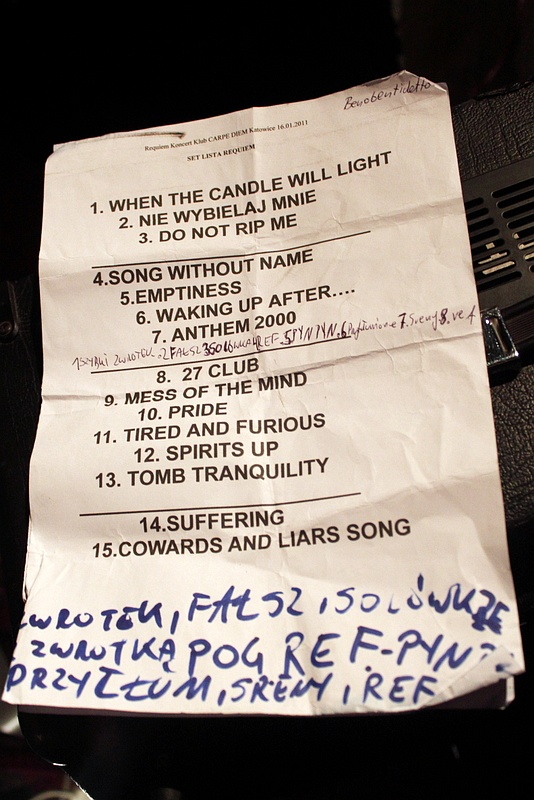 Benobenidetto
Requiem Koncert Klub CARPE DIEM Katowice 16.01.2011
SET LISTA REQUIEM
1. WHEN THE CANDLE WILL LIGHT
2. NIE WYBIELAJ MNIE
3. DO NOT RIP ME
4.SONG WITHOUT NAME
5.EMPTINESS
6. WAKING UP AFTER....
7. ANTHEM 2000
ZWROTEK 2FAŁSZ REF 5PYNTYN 8.ref
8. 27 CLUB
9. MESS OF THE MIND
10. PRIDE
11. TIRED AND FURIOUS
12. SPIRITS UP
13. TOMB TRANQUILITY
14.SUFFERING
15.COWARDS AND LIARS SONG
ZWROTEK, FAŁSZ, SOLÓWKZE
ZWROTKĄ POG REF-PYN
PRZYTŁUM, SRENY, REF